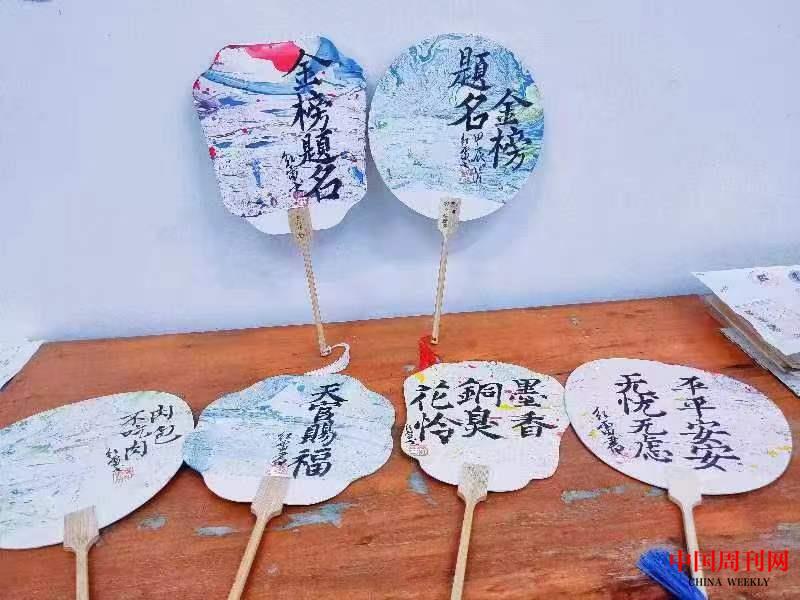 金榜題名
金榜
題名
甲辰
肉包
不吃肉
天官賜福
墨香
銅臭
花怜
平平安安
无忧无虑
中国周刊网
CHINA WEEKLY